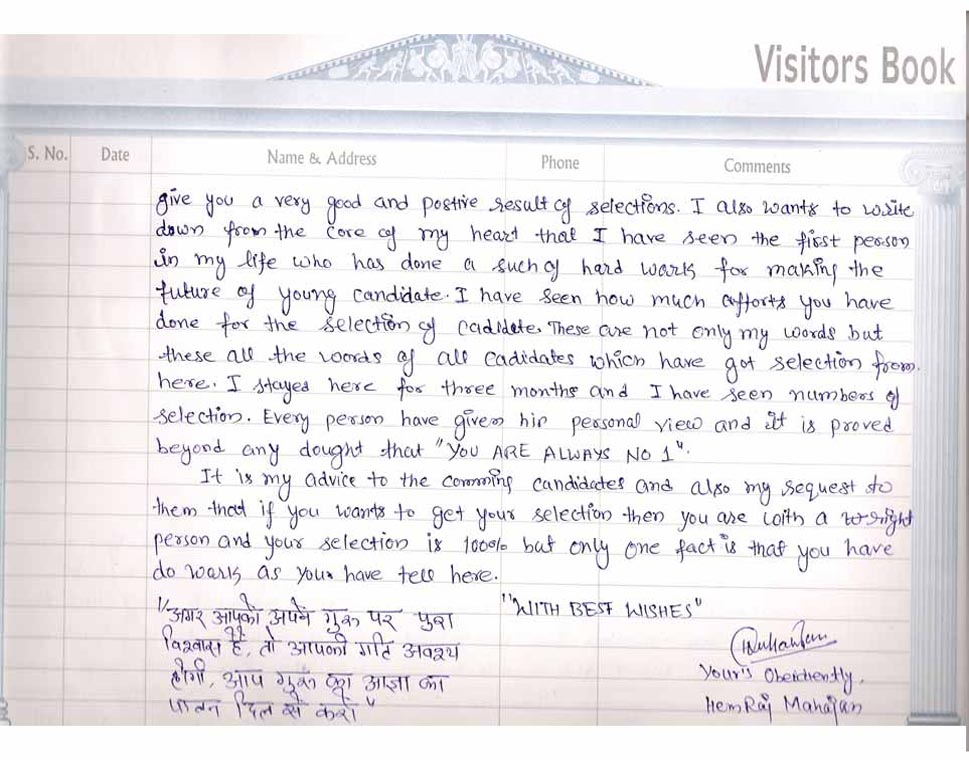 Visitors Book
S. No. Date Name & Address Phone Comments
give you a very good and postive result of selections. I also wants to write
down from the core of my heart that I have seen the first person
in my life who has done a such of hard wark for making the
future of young candidate. I have seen how much afforts you have
done for the selection of cadidate. These are not only my words but
these all the words of all cadidates which have got selection from
here. I stayed here for three months and I have seen numbers of
selection. Every person have given his personal view and it is proved
beyond any dought that "YOU ARE ALWAYS NO 1".
It is my advice to the comming candidates and also my request to
them that if you wants to get your selection then you are with a right
person and your selection is 100% but only one fact is that you have
do wark as your have tell here.
"अगर आपको अपने गुरू पर पुरा
विश्वास है, तो आपकी गति अवश्य
होगी, आप गुरू की आज्ञा का
पालन दिल से करो"
"WITH BEST WISHES"
Your's Obeidiently,
HemRaj Mahajan